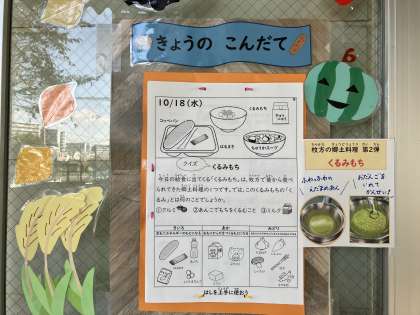 きょうの こんだて
10/18(水)
くるみもち
コッペパン
はるまき
クイズ
くるみもち
今日の給食に出てくる「くるみもち」は、枚方で昔から食べ
られてきた郷土料理のひとつです。では、このくるみもちの「く
るみ」とは何のことでしょうか。
①クルミ
②あんこでもちをくるむこと
③ミルク
きいろ
あか
みどり
はしを上手に使おう
6
枚方の郷土料理 第2弾
くるみもち
ふわふわの
えだまめあん
おだんごを
いれて
かんせい!